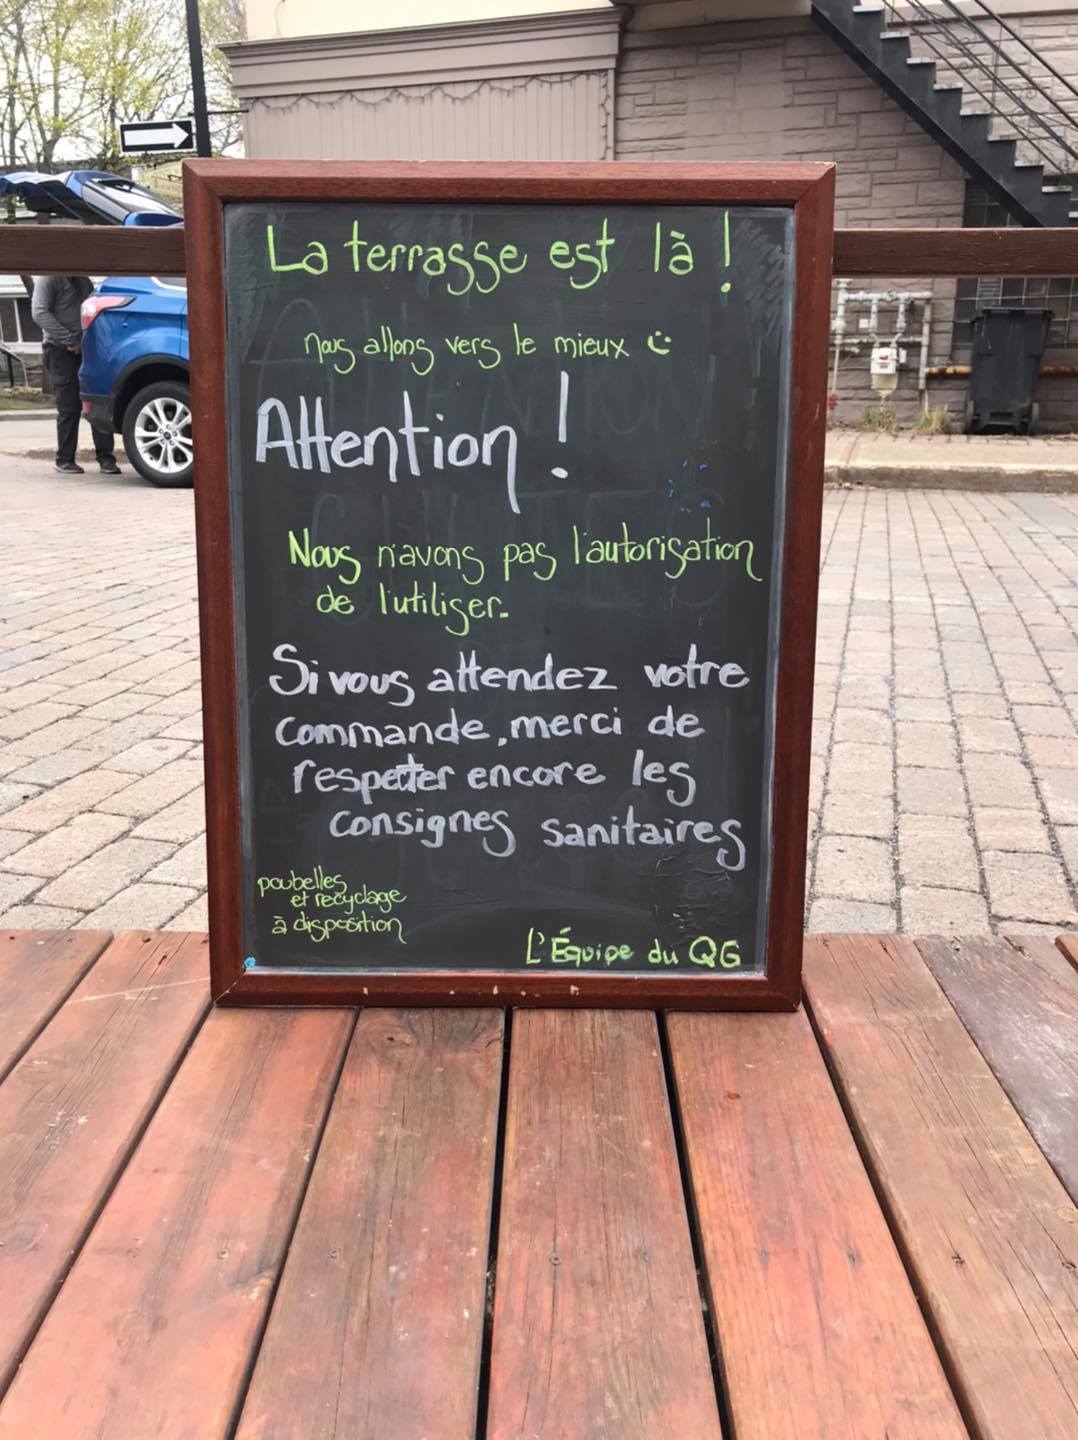 La terrasse est là !
nous allons vers le mieux
Attention !
Nous n'avons pas l'autorisation
de l'utiliser.
Si vous attendez votre
commande, merci de
respecter encore les
consignes sanitaires
poubelles
et recyclage
à disposition
L'Équipe du QG